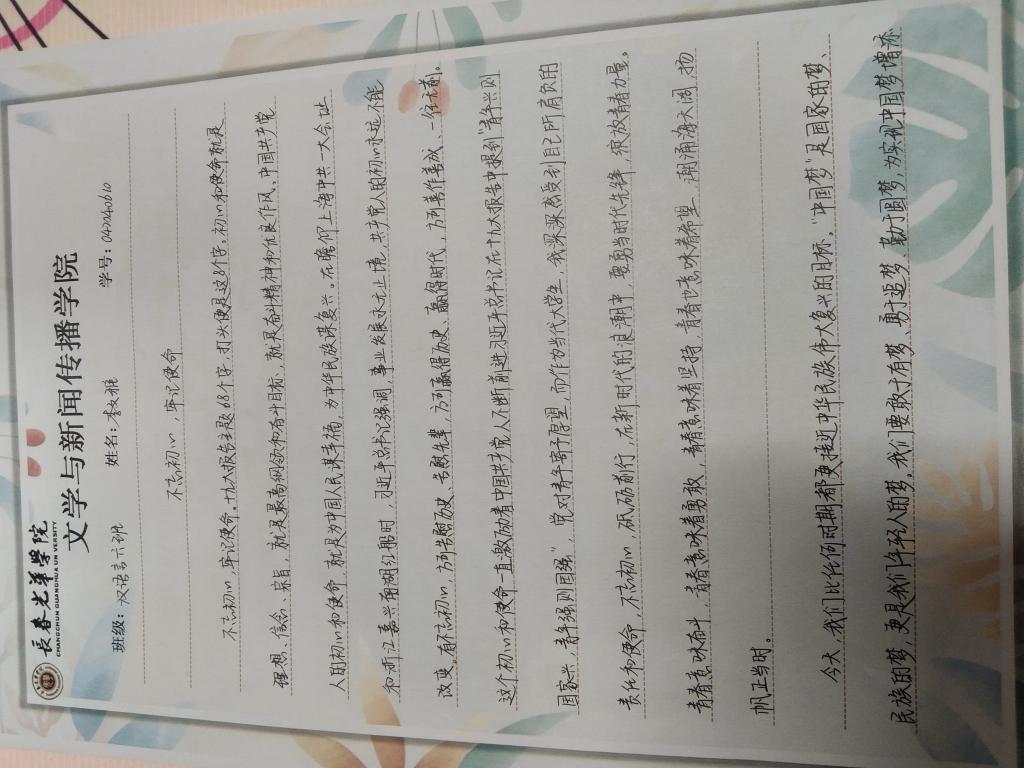 长春光华学院
CHANGCHUN GUANGHUA UNIVERSITY
文学与新闻传播学院
班级：汉语言六班 姓名：李 学号：042040610
不忘初心，牢记使命
不忘初心，牢记使命。十九大报告主题68个字，打头便是这8个字。初心和使命就是
理想、信念、宗旨，就是最高纲领和奋斗目标，就是奋斗精神和优良作风。中国共产党
人的初心和使命，就是为中国人民谋幸福，为中华民族谋复兴。在瞻仰上海中共一大会址
和浙江嘉兴南湖红船时，习近平总书记强调，事业发展永无止境，共产党人的初心永远不能
改变。唯有不忘初心，方可告慰历史、告慰先辈，方可赢得历史、赢得时代，方可善作善成、一往无前。
这个初心和使命一直激励着中国共产党人不断前进。习近平总书记在十九大报告中提到“青年兴则
国家兴，青年强则国强”，党对青年寄予厚望，而作为当代大学生，我深深感受到自己所肩负的
责任和使命，不忘初心，砥砺前行，在新时代的浪潮中，要勇当时代先锋，绽放青春力量。
青春意味奋斗，青春意味着勇敢，青春意味着坚持，青春也意味着希望，潮涌海天阔，扬
帆正当时。
今天，我们比任何时期都更接近中华民族伟大复兴的目标。“中国梦”是国家的梦、
民族的梦，更是我们年轻人的梦，我们要敢于有梦、勇于追梦、勤于圆梦，为实现中国梦增添